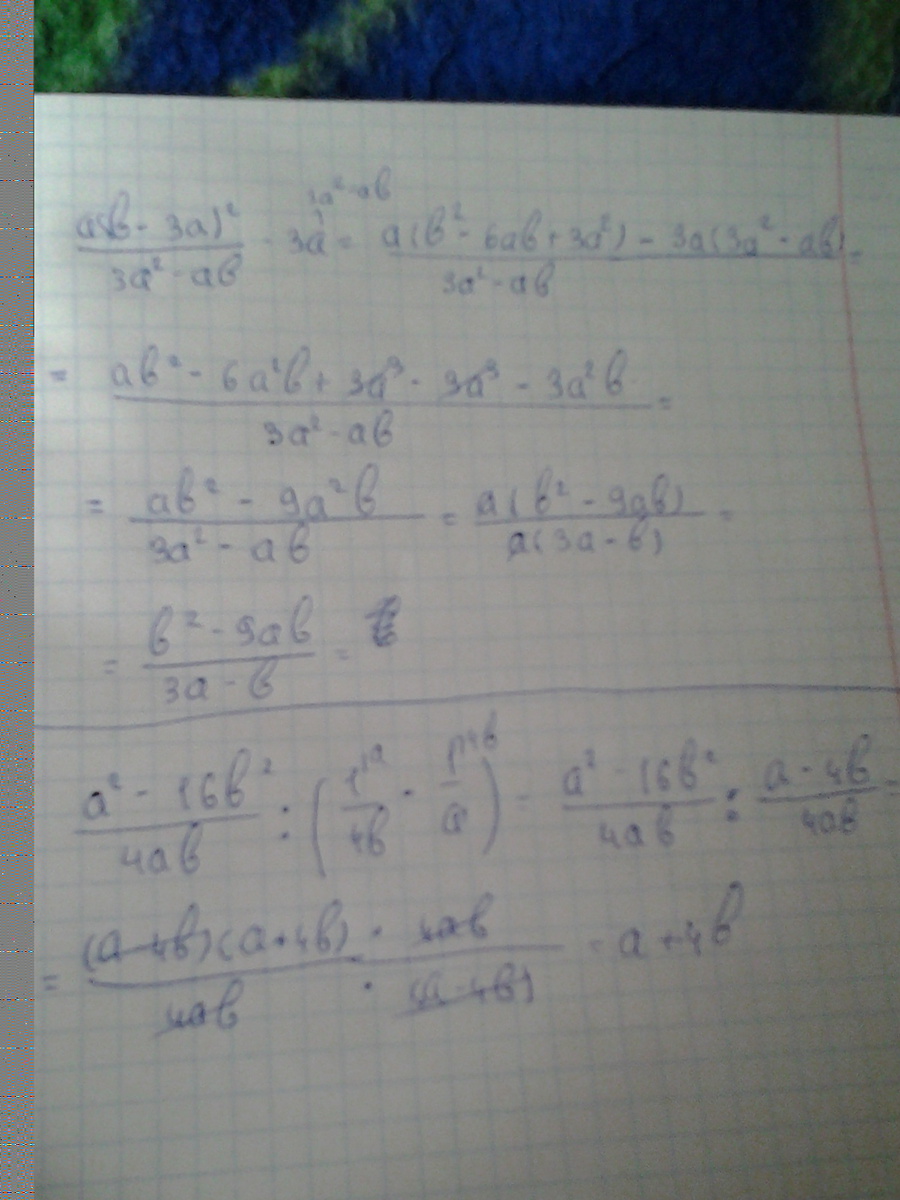 3a² - ab
a(b - 3a)² / 3a² - ab - 3a = a(b² - 6ab + 3a²) - 3a(3a² - ab) / 3a² - ab =
= ab² - 6a²b + 3a³ - 3a³ - 3a²b / 3a² - ab =
= ab² - 9a²b / 3a² - ab = a(b² - 9ab) / a(3a - b) =
= b² - 9ab / 3a - b =
a² - 16b² / 4ab : (1 / 4b - 1 / a) = a² - 16b² / 4ab : a - 4b / 4ab =
= (a - 4b)(a + 4b) · 4ab / 4ab · (a - 4b) = a + 4b